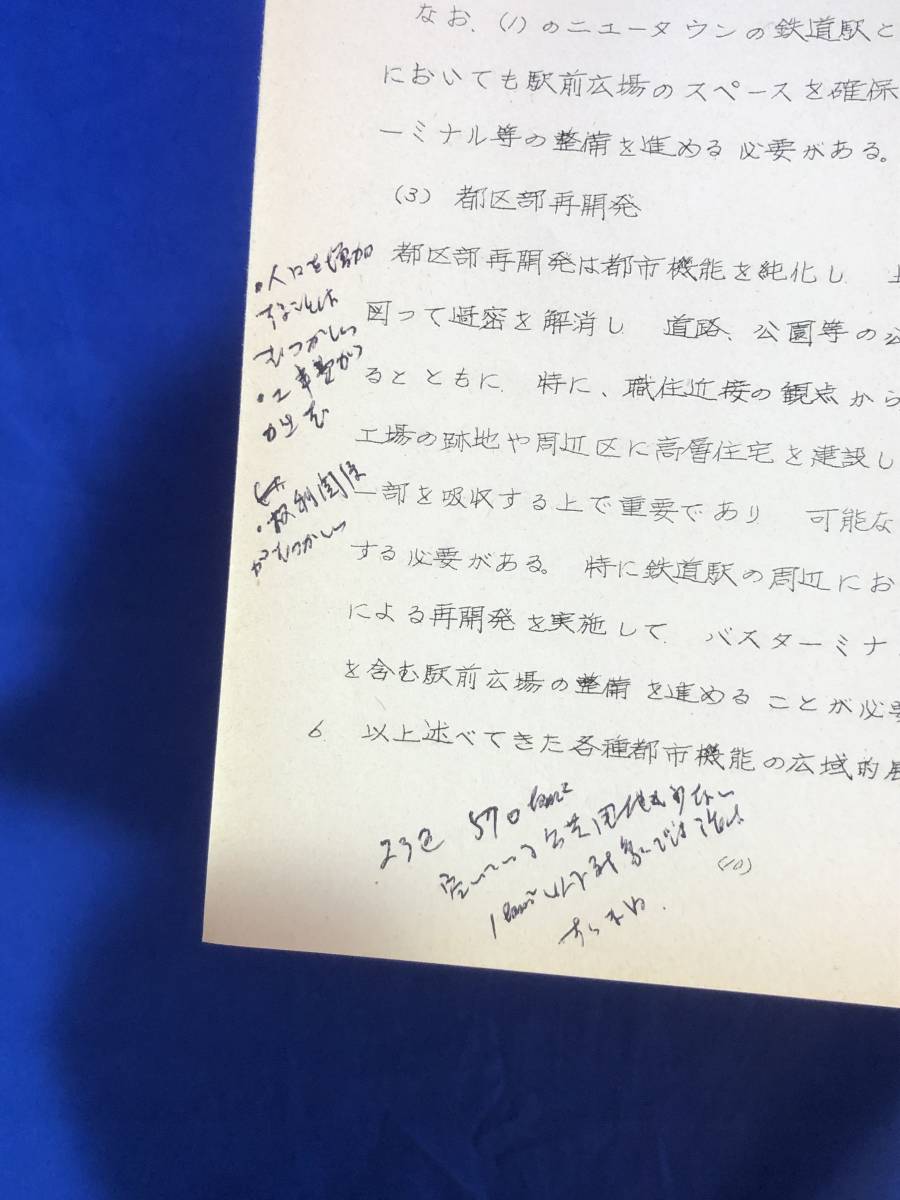 なお、(1)のニュータウンの鉄道駅と
においても駅前広場のスペースを確保
ーミナル等の整備を進める必要がある。
(3) 都区部再開発
都区部再開発は都市機能を純化し
図って過密を解消し 道路、公園等の公
るとともに、特に、職住近接の観点から
工場の跡地や周辺区に高層住宅を建設し
一部を吸収する上で重要であり 可能な
する必要がある。特に鉄道駅の周辺にお
による再開発を実施して、バスターミナ
を含む駅前広場の整備を進めることが必要
6 以上述べてきた各種都市機能の広域的展
・人口を増加
することは
むつかしい
・工事費が
・権利関係
がむつかしい
23区 570km²
(10)